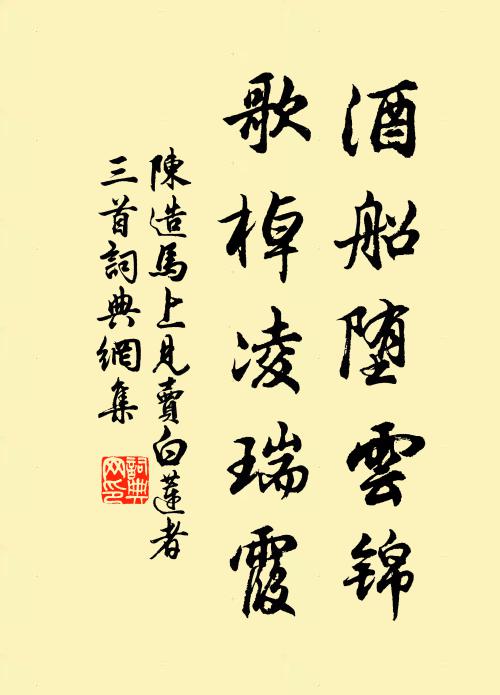 酒船堕雲锦
歌棹凌瑞霞
陳造馬上見賣白蓮者
三首詞典網集
詞典网印